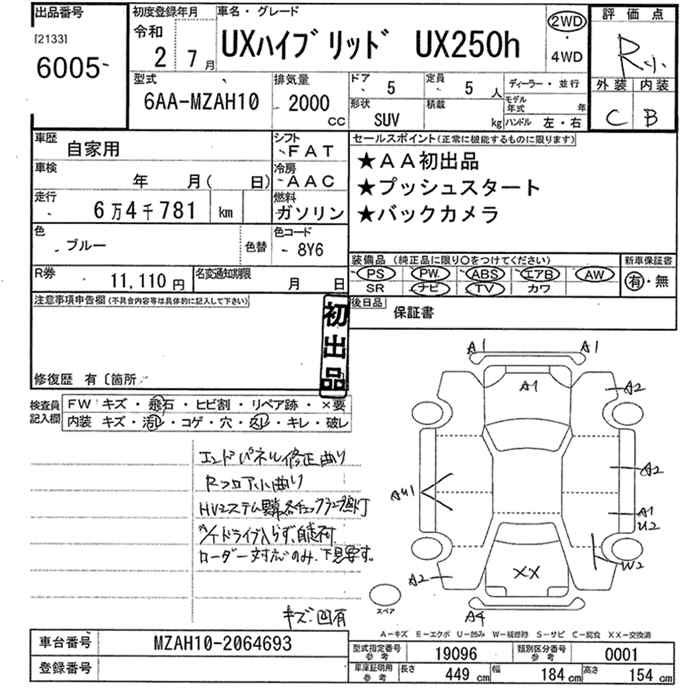 出品番号
[2133]
6005
初度登録年月
令和
2年 7月
車名・グレード
UXハイブリッド UX250h
2WD
・
4WD
評価点
R
外装 内装
C B
型式
6AA-MZAH10
排気量
2000
CC
ドア
5
定員
5 人
ディーラー・並行
形状
SUV
積載
kg
モデル年式 年
ハンドル 左・右
車歴
自家用
シフト
FAT
車検
年 月( 日)
冷房
AAC
走行
6万4千781 km
燃料
ガソリン
色
ブルー
色替
色コード
8Y6
R券
11,110 円
名変通知期限
月 日
セールスポイント(正常に機能するものに限ります)
★AA初出品
★プッシュスタート
★バックカメラ
装備品(純正品に限り○をつけてください)
新車保証書
PS PW ABS エアB AW
SR ナビ TV カワ
有・無
後日品
保証書
注意事項申告欄(不具合内容等は具体的に記入して下さい)
初出品
修復歴 有〔箇所
検査員記入欄
FW キズ・飛石・ヒビ割・リペア跡・×要
内装 キズ・汚レ・コゲ・穴・凹レ・キレ・破レ
エンドパネル修正曲り
Rフロア小曲り
HVシステム異常チェックランプ点灯
ローダー対応のみ、下見要す。
キズ・凹有
A1 A1
A1
A2
A2
A1
U2
AU1
W2
A2
XX
A4
スペア
A-キズ E-エクボ U-凹み W-補修跡 S-サビ C-腐食 XX-交換済
車台番号
MZAH10-2064693
登録番号
型式指定番号 参考
19096
類別区分番号 参考
0001
車庫証明用 参考
長さ 449 cm
幅 184 cm
高さ 154 cm